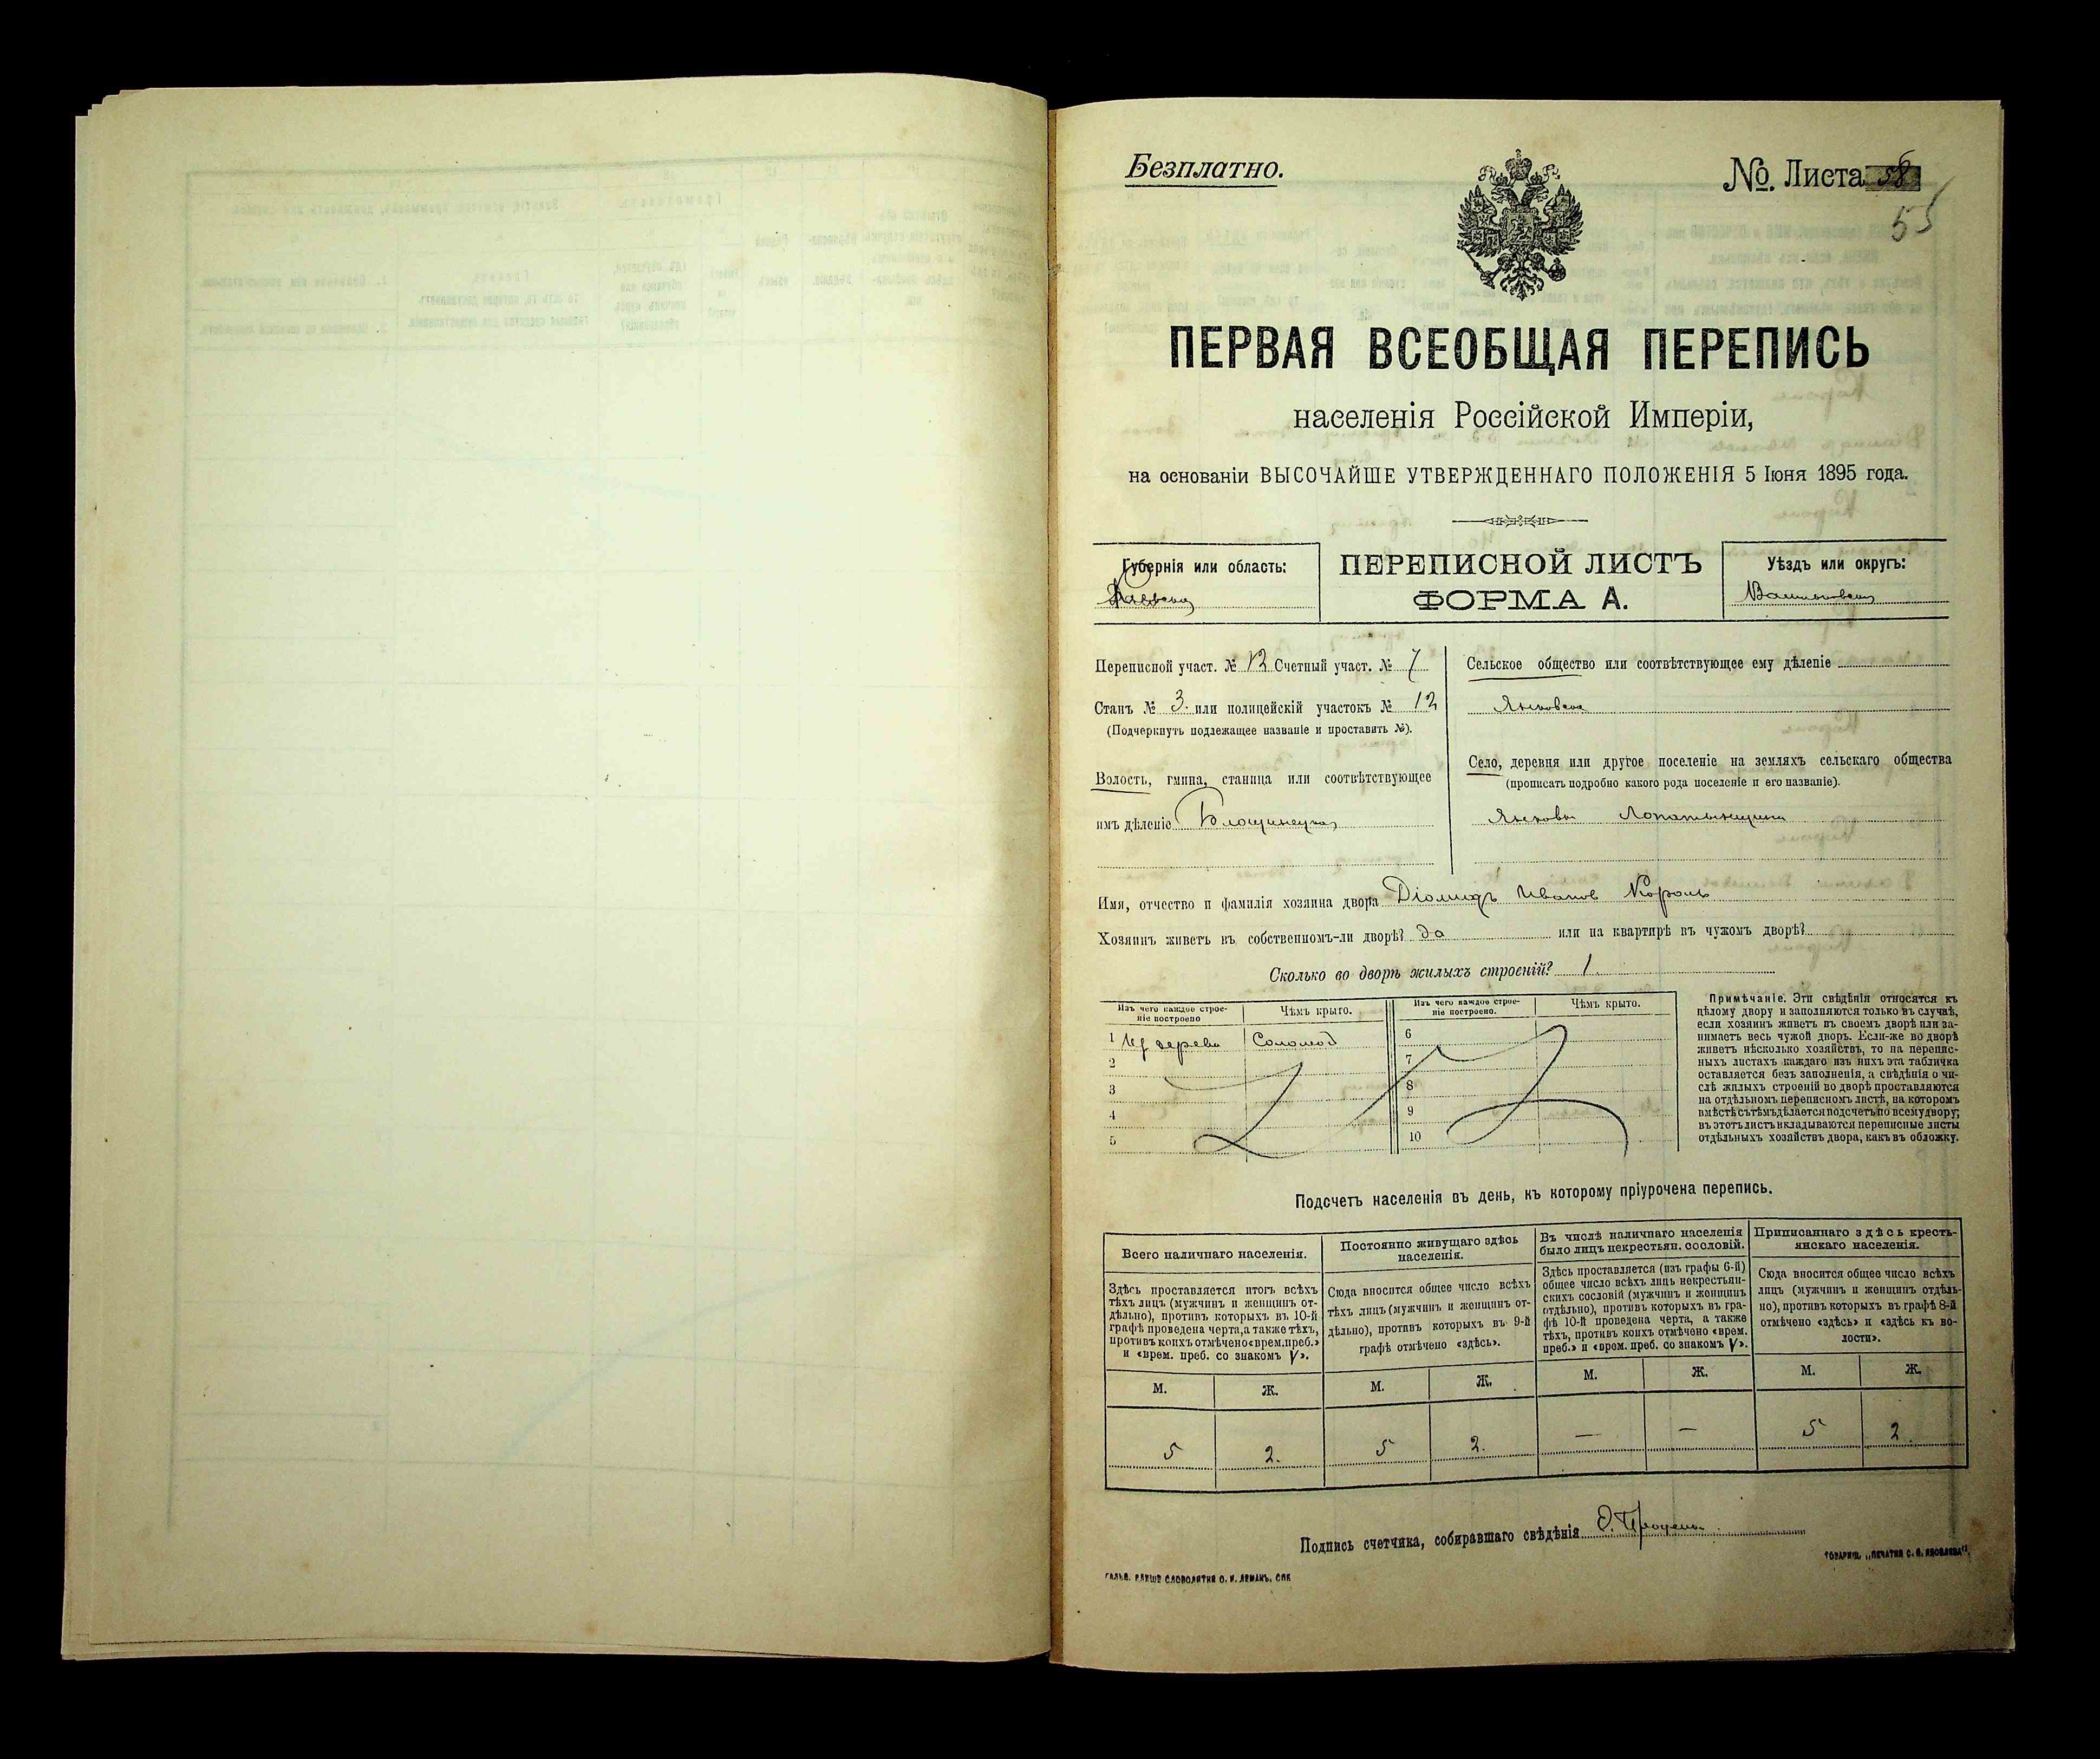 Безплатно.
№. Листа 58
55
ПЕРВАЯ ВСЕОБЩАЯ ПЕРЕПИСЬ
населенія Россійской Имперіи,
на основаніи ВЫСОЧАЙШЕ УТВЕРЖДЕННАГО ПОЛОЖЕНІЯ 5 Іюня 1895 года.
Губернія или область:
ПЕРЕПИСНОЙ ЛИСТЪ
ФОРМА А.
Уѣздъ или округъ:
Переписной участ. № 12 Счетный участ. № 7
Станъ № 3. или полицейскій участокъ № 12
(Подчеркнуть подлежащее названіе и проставить №).
Волость, гмина, станица или соотвѣтствующее
имъ дѣленіе Блощинецкая
Сельское общество или соотвѣтствующее ему дѣленіе
Янковское
Село, деревня или другое поселеніе на земляхъ сельскаго общества
(прописать подробно какого рода поселеніе и его названіе).
Имя, отчество и фамилія хозяина двора Діомидъ Иванов Король
Хозяинъ живетъ въ собственномъ-ли дворѣ? да или на квартирѣ въ чужомъ дворѣ?
Сколько во дворѣ жилыхъ строеній? 1.
Изъ чего каждое строе-
ніе построено
Чѣмъ крыто.
1 Из дерева Соломой
2
3
4
5
Изъ чего каждое строе-
ніе построено.
Чѣмъ крыто.
6
7
8
9
10
Примѣчаніе. Эти свѣдѣнія относятся къ
цѣлому двору и заполняются только въ случаѣ,
если хозяинъ живетъ въ своемъ дворѣ или за-
нимаетъ весь чужой дворъ. Если-же во дворѣ
живетъ нѣсколько хозяйствъ, то на перепис-
ныхъ листахъ каждаго изъ нихъ эта табличка
оставляется безъ заполненія, а свѣдѣнія о чи-
слѣ жилыхъ строеній во дворѣ проставляются
на отдѣльномъ переписномъ листѣ, на которомъ
вмѣстѣ съ тѣмъ дѣлается подсчетъ по всему двору;
въ этотъ листъ вкладываются переписные листы
отдѣльныхъ хозяйствъ двора, какъ въ обложку.
Подсчетъ населенія въ день, къ которому пріурочена перепись.
Всего наличнаго населенія.
Здѣсь проставляется итогъ всѣхъ
тѣхъ лицъ (мужчинъ и женщинъ от-
дѣльно), противъ которыхъ въ 10-й
графѣ проведена черта, а также тѣхъ,
противъ коихъ отмѣчено «врем. преб.»
и «врем. преб. со знакомъ V».
М. Ж.
5 2.
Постоянно живущаго здѣсь
населенія.
Сюда вносится общее число всѣхъ
тѣхъ лицъ (мужчинъ и женщинъ от-
дѣльно), противъ которыхъ въ 9-й
графѣ отмѣчено «здѣсь».
М. Ж.
5 2.
Въ числѣ наличнаго населенія
было лицъ некрестьян. сословій.
Здѣсь проставляется (изъ графы 6-й)
общее число всѣхъ лицъ некрестьян-
скихъ сословій (мужчинъ и женщинъ
отдѣльно), противъ которыхъ въ гра-
фѣ 10-й проведена черта, а также
тѣхъ, противъ коихъ отмѣчено «врем.
преб.» и «врем. преб. со знакомъ V».
М. Ж.
— —
Приписаннаго здѣсь кресть-
янскаго населенія.
Сюда вносится общее число всѣхъ
лицъ (мужчинъ и женщинъ отдѣль-
но), противъ которыхъ въ графѣ 8-й
отмѣчено «здѣсь» и «здѣсь къ во-
лости».
М. Ж.
5 2.
Подпись счетчика, собиравшаго свѣдѣнія
ТОВАРИЩ. „ПЕЧАТНЯ С. П. ЯКОВЛЕВА".
ГАЛЬВ. КЛИШЕ СЛОВОЛИТНИ О. И. ЛЕМАНЪ, СПБ